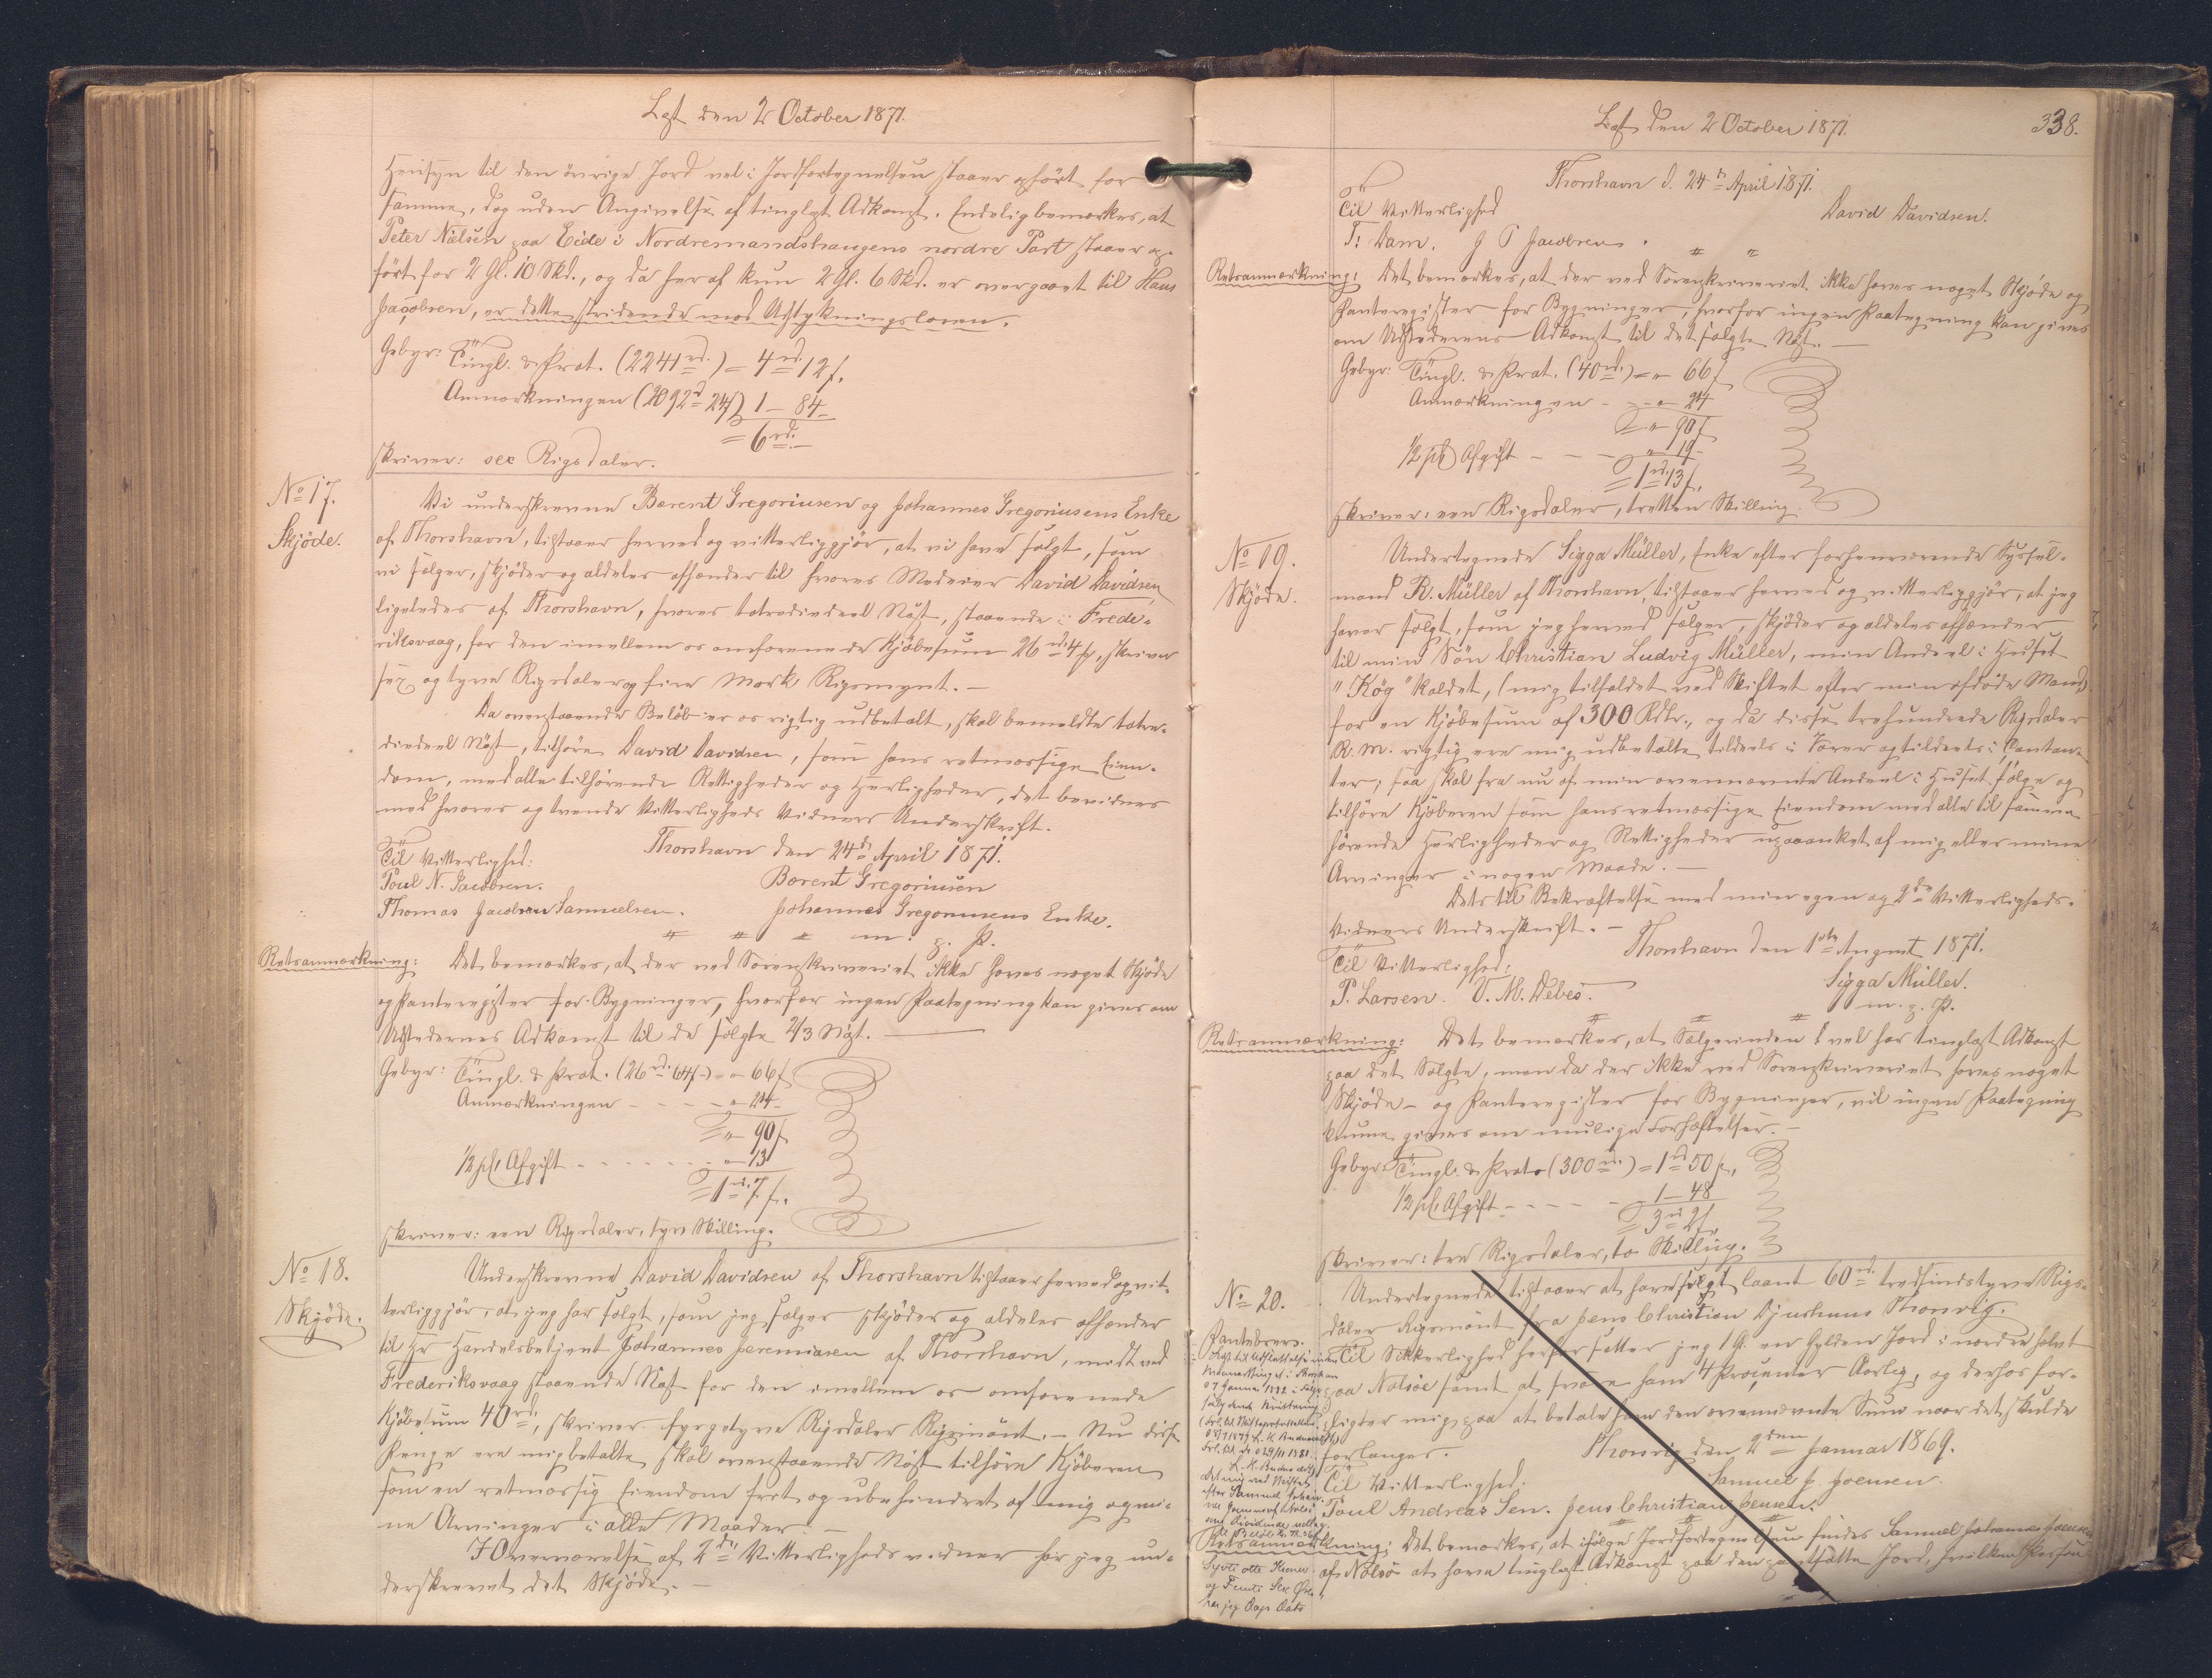 Læst den 2 October 1871.
Hensyn til den övrige Jord vel i Jordfortegnelsen staaer opfört for
samme, dog uden Angivelse af tinglyst Adkomst. Endelig bemærkes, at
Peter Nielsen paa Eide i Nordremandshaugens nordre Part staaer op-
fört for 2 Gl. 10 Skd., og da heraf kun 2 Gl. 6 Skd. er overgaaet til Hans
Jacobsen, er dette stridende mod Udstykningsloven.
Gebyr: Tingl. & Prot. (2241 rd.) = 4 rd. 12 s.
Anmærkningen (2092 rd 24 s) 1 - 84 -
= 6 rd. -
skriver: sex Rigsdaler.
No 17.
Skjöde.
Vi underskrevne Berent Gregoriusen og Johannes Gregoriusens Enke
af Thorshavn, tilstaaer herved og vitterliggjør, at vi have solgt, som
vi sælger, skjöder og aldeles afhænder til hvores Medeier David Davidsen
ligeledes af Thorshavn, hvores totrediedeel Nöst, staaende i Frede-
riksvaag, for den imellem os omforenede Kjöbesum 26 rd 4 ß, skriver
sex og tyve Rigsdaler og fire Mark Rigsmynt. -
Da ovenstaaende Belöb er os rigtig udbetalt, skal bemeldte totre-
diedeel Nöst, tilhöre David Davidsen, som hans retmæssige Eien-
dom, med alle tilhörende Rettigheder og Herligheder, det bevidnes
med hvores og tvende Vitterligheds Vidners Underskrift.
Thorshavn den 24de April 1871.
Til Vitterlighed:
Poul N. Jacobsen.
Berent Gregoriusen
Thomas Jacobsen Samuelsen.
Johannes Gregoriusens Enke.
m. f. P.
Retsanmærkning: Det bemærkes, at der ved Sorenskriveriet ikke haves noget Skjöde
og Panteregister for Bygninger, hvorfor ingen Paategning kan gives om
Udstedernes Adkomst til de solgte 2/3 Nöst.
Gebyr: Tingl. & Prot. (26 rd. 64 s) = " 66 s
Anmærkningen - - - " 24 -
= " 90 s
1/2 pCt Afgift - - - - " 13
= 1 rd. 7 s.
skriver: een Rigsdaler, syv Skilling.
No 18.
Skjöde.
Underskrevne David Davidsen af Thorshavn tilstaaer herved og vit-
terliggjør, at jeg har solgt, som jeg sælger skjöder og aldeles afhænder
til Hr Handelsbetjent Johannes Jeremiasen af Thorshavn, midt ved
Frederiksvaag staaende Nöst for den imellem os omforenede
Kjöbesum 40 rd., skriver fyrgetyve Rigsdaler Rigsmönt. - Nu disse
Penge ere mig betalte, skal ovenstaaende Nöst tilhöre Kjöberen
som en retmæssig Eiendom frit og ubehindret af mig og mi-
ne Arvinger i alle Maader. -
I Overværelse af 2de Vitterligheds vidner har jeg un-
derskrevet det Skjöde. -
Læst den 2 October 1871.
338.
Thorshavn d. 24de April 1871.
Til Vitterlighed
David Davidsen.
T: Dam. J P Jacobsen.
Retsanmærkning: Det bemærkes, at der ved Sorenskriveriet ikke haves noget Skjöde og
Panteregister for Bygninger, hvorfor ingen Paategning kan gives
om Udstederens Adkomst til det solgte Nöst. -
Gebyr: Tingl. & Prot. (40 rd.) = " 66 s
Anmærkningen - - " 24
= " 90 s
1/2 pCt Afgift - - - " 19 -
= 1 rd. 13 s.
skriver: een Rigsdaler, tretten Skilling.
No 19.
Skjöde.
Undertegnede Sigga Müller, Enke efter forhenværende Syssel-
mand R. Müller af Thorshavn, tilstaaer herved og vitterliggjør, at jeg
haver solgt, som jeg herved sælger, skjöder og aldeles afhænder
til min Sön Christian Ludvig Müller, min Andeel i Huset
"Kög" kaldet, (mig tilfaldet ved Skiftet efter min afdöde Mand)
for en Kjöbesum af 300 Rdlr., og da disse trehundrede Rigsdaler
R. M. rigtig ere mig udbetalte tildeels i Varer og tildeels i Contan-
ter; saa skal fra nu af min ovennævnte Andeel i Huset fölge og
tilhöre Kjöberen som hans retmæssige Eiendom med alle til samme
hörende Herligheder og Rettigheder upaaanket af mig eller mine
Arvinger i nogen Maade. -
Dets til Bekræftelse med min egen og 2de Vitterligheds-
Vidners Underskrift. -
Thorshavn den 1ste August 1871.
Til Vitterlighed:
Sigga Müller.
P. Larsen. V. M. Debes.
m. f. P.
Retsanmærkning: Det bemærkes, at Sælgerinden vel har tinglyst Adkomst
paa det Solgte, men da der ikke ved Sorenskriveriet haves noget
Skjöde- og Panteregister for Bygninger, vil ingen Paategning
kunne gives om mulige Forhæftelser. -
Gebyr: Tingl. & Prot. (300 rd.) = 1 rd 50 s,
1/2 pCt Afgift - - - - 1 - 48
= 3 rd 2 s.
skriver: tre Rigsdaler, to Skilling.
No 20.
Pantebrev.
Undertegnede tilstaaer at have solgt laant 60 rd. tredsindstyve Rigs-
daler Rigsmönt fra Jens Christian Djuurhuus Thorsvig.
Til Sikkerlighed herfor setter jeg 1 G. en Gylden Jord i nordre halvt
paa Nolsöe samt at svare ham 4 Procenter Aarlig, og derhos for-
pligter mig paa at betale ham den ovennævnte Sum naar det skulde
forlanges.
Thorsvig den 2den Januar 1869.
Samuel J. Joensen.
Til Vitterlighed.
Poul Andreas Sen. Jens Christian Jensen.
Retsanmærkning: Det bemærkes, at ifölge Jordfortegnelsen findes Samuel Johannes Joensen
af Nolsö at have tinglyst Adkomst paa den pantsatte Jord, hvilken Person
Syvti otte Kroner
og Femti Sex Øre
har jeg Dags Dato